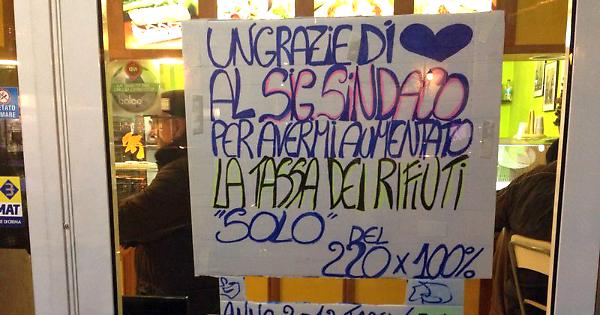 UN GRAZIE DI
AL SIG. SINDACO
PER AVERMI AUMENTATO
LA TASSA DEI RIFIUTI
"SOLO" DEL
220 x 100%
ANNO